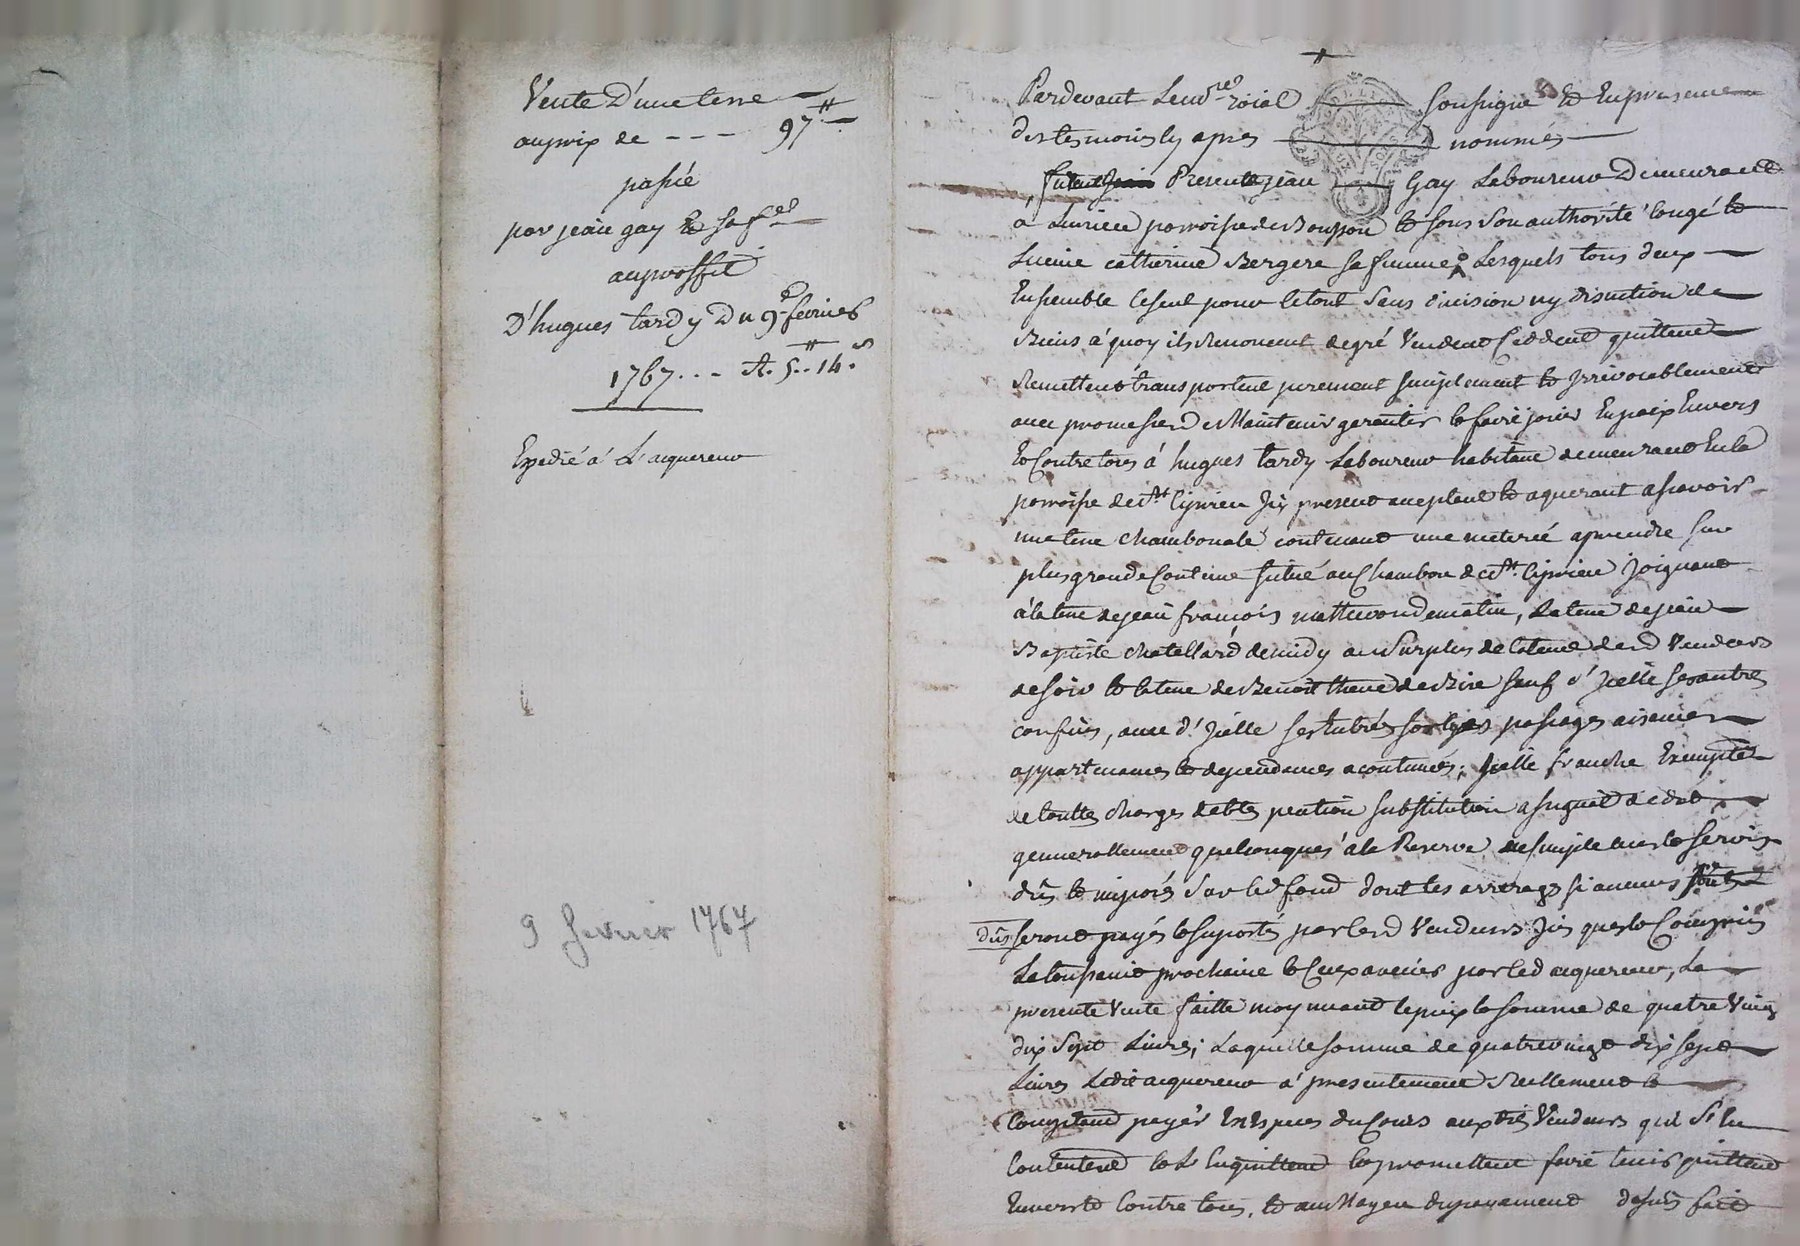 Vente D'une terre
au prix de - - - 97 ₶
passée
par jean gay et sa f.e
au proffit
D'hugues tardy Du 9.e fevrier
1767... - A. 5 ₶.. 14.s
Expedié a L'acquereur
9 fevrier 1767
Pardevant Le no.re roial soussigné et En presence
des tesmoins cy apres nommés
Presents jean Gay Laboureur Demeurant
à paroisse de Bonson et sous son authorité congé et
Licence catherine Bergere sa femme, Lesquels tous deux
Ensemble le seul pour le tout Sans division ny discution de
Biens à quoy ils Renoncent de gré Vendent Ceddent quittent
Remettent transportent purement simplement et Irrévocablement
avec promesse de Maintenir garentir et faire jouir En paix Envers
Et Contre tous à hugues tardy Laboureur habitant demeurant En la
paroisse de St. Ciprien Icy present acceptant et aquerant a scavoir
une terre chambonale contenant une meterée a prendre sur
plus grande Contenue situé au Chambon de St. Ciprien Joignant
à la terre de jean françois de matin, La terre de jean
Baptiste chatellard de midy au Surplus de la terre desd Vendeurs
de soir et la terre de Benoit de Bise sauf d'Icelle ses autres
confins, avec d'Icelle ses Entrées sorties passages aisances
appartenances et dependances acoutumés; Icelle franche Exempte
de touttes charges debtes pention substitution
generallement quelconques à la Reserve des simple cens et servis
dûs et imposés Sur led fond dont les arrerages si aucuns sont
dûs seront payés et suportés par lesd Vendeurs Jus ques et Compris
La toussaint prochaine et Ceux a venir par led acquereur, La
presente Vente faitte moyennant le prix et somme de quatre Vingt
dix Sept Livres; Laquelle somme de quatre vingt dix sept
Livres Ledit acquereur a presentement Reellement et
Comptant payér En Especes du Cours auxdits Vendeurs qui S'en
Contentent et L'En quittent et promettent faire tenir quittent
Envers et Contre tous, et au Moyen du payement dessus fait